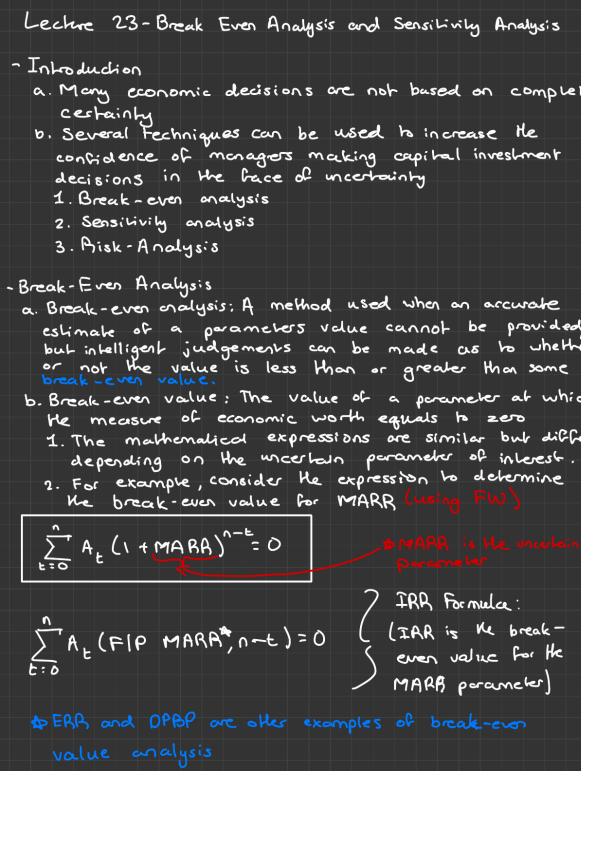 Lecture 23 - Break Even Analysis and Sensitivity Analysis
- Introduction
a. Many economic decisions are not based on complet
certainty
b. Several techniques can be used to increase the
confidence of managers making capital investment
decisions in the face of uncertainty
1. Break-even analysis
2. Sensitivity analysis
3. Risk-Analysis
- Break-Even Analysis
a. Break-even analysis: A method used when an accurate
estimate of a parameters value cannot be provided
but intelligent judgements can be made as to wheth
or not the value is less than or greater than some
break-even value.
b. Break-even value: The value of a parameter at whic
the measure of economic worth equals to zero
1. The mathematical expressions are similar but diff
depending on the uncertain parameter of interest.
2. For example, consider the expression to determine
the break-even value for MARR (using FW)
n
∑ A_t (1 + MARR)^{n-t} = 0
t=0
☆ MARR is the uncertain
parameter
n
∑ A_t (F|P MARR*, n-t) = 0
t=0
IRR Formula:
(IRR is the break-
even value for the
MARR parameter)
☆ ERR and DPBP are other examples of break-even
value analysis